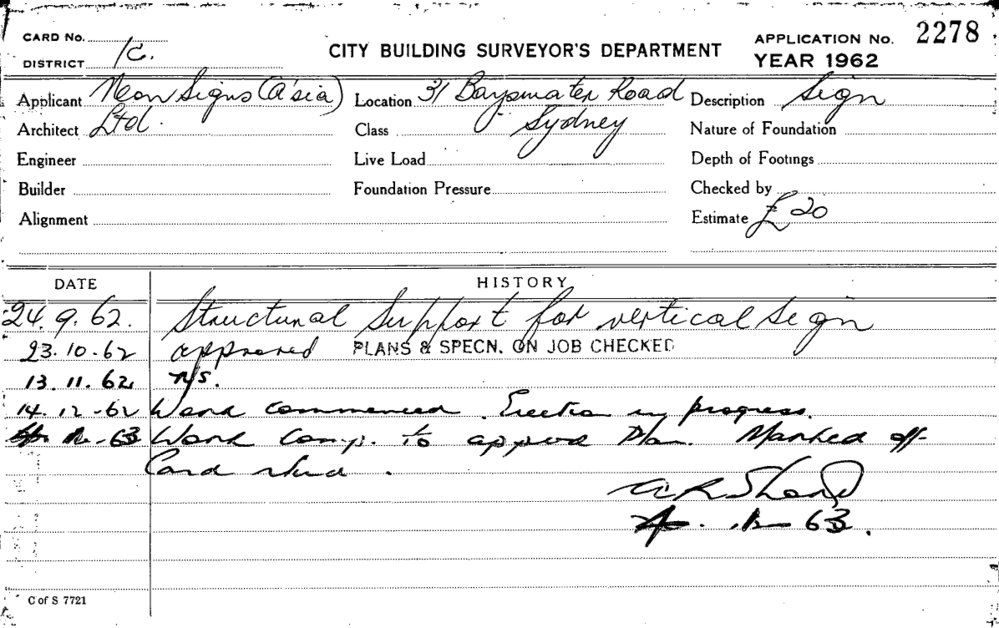 CARD No.
DISTRICT 1C.
CITY BUILDING SURVEYOR'S DEPARTMENT
APPLICATION No. 2278
YEAR 1962
Applicant Neon Signs (A'sia) Location 31 Bayswater Road Description Sign
Architect Ltd. Class Sydney Nature of Foundation
Engineer Live Load Depth of Footings
Builder Foundation Pressure Checked by
Alignment Estimate £20
DATE HISTORY
24.9.62. Structural Support for vertical sign
23.10.62 approved PLANS & SPECN. ON JOB CHECKED
13.11.62 N/S.
14.12-62 Work commenced. Erection in progress.
63 Work comp. to approved Plan. Marked off
Card
63.
C of S 7721